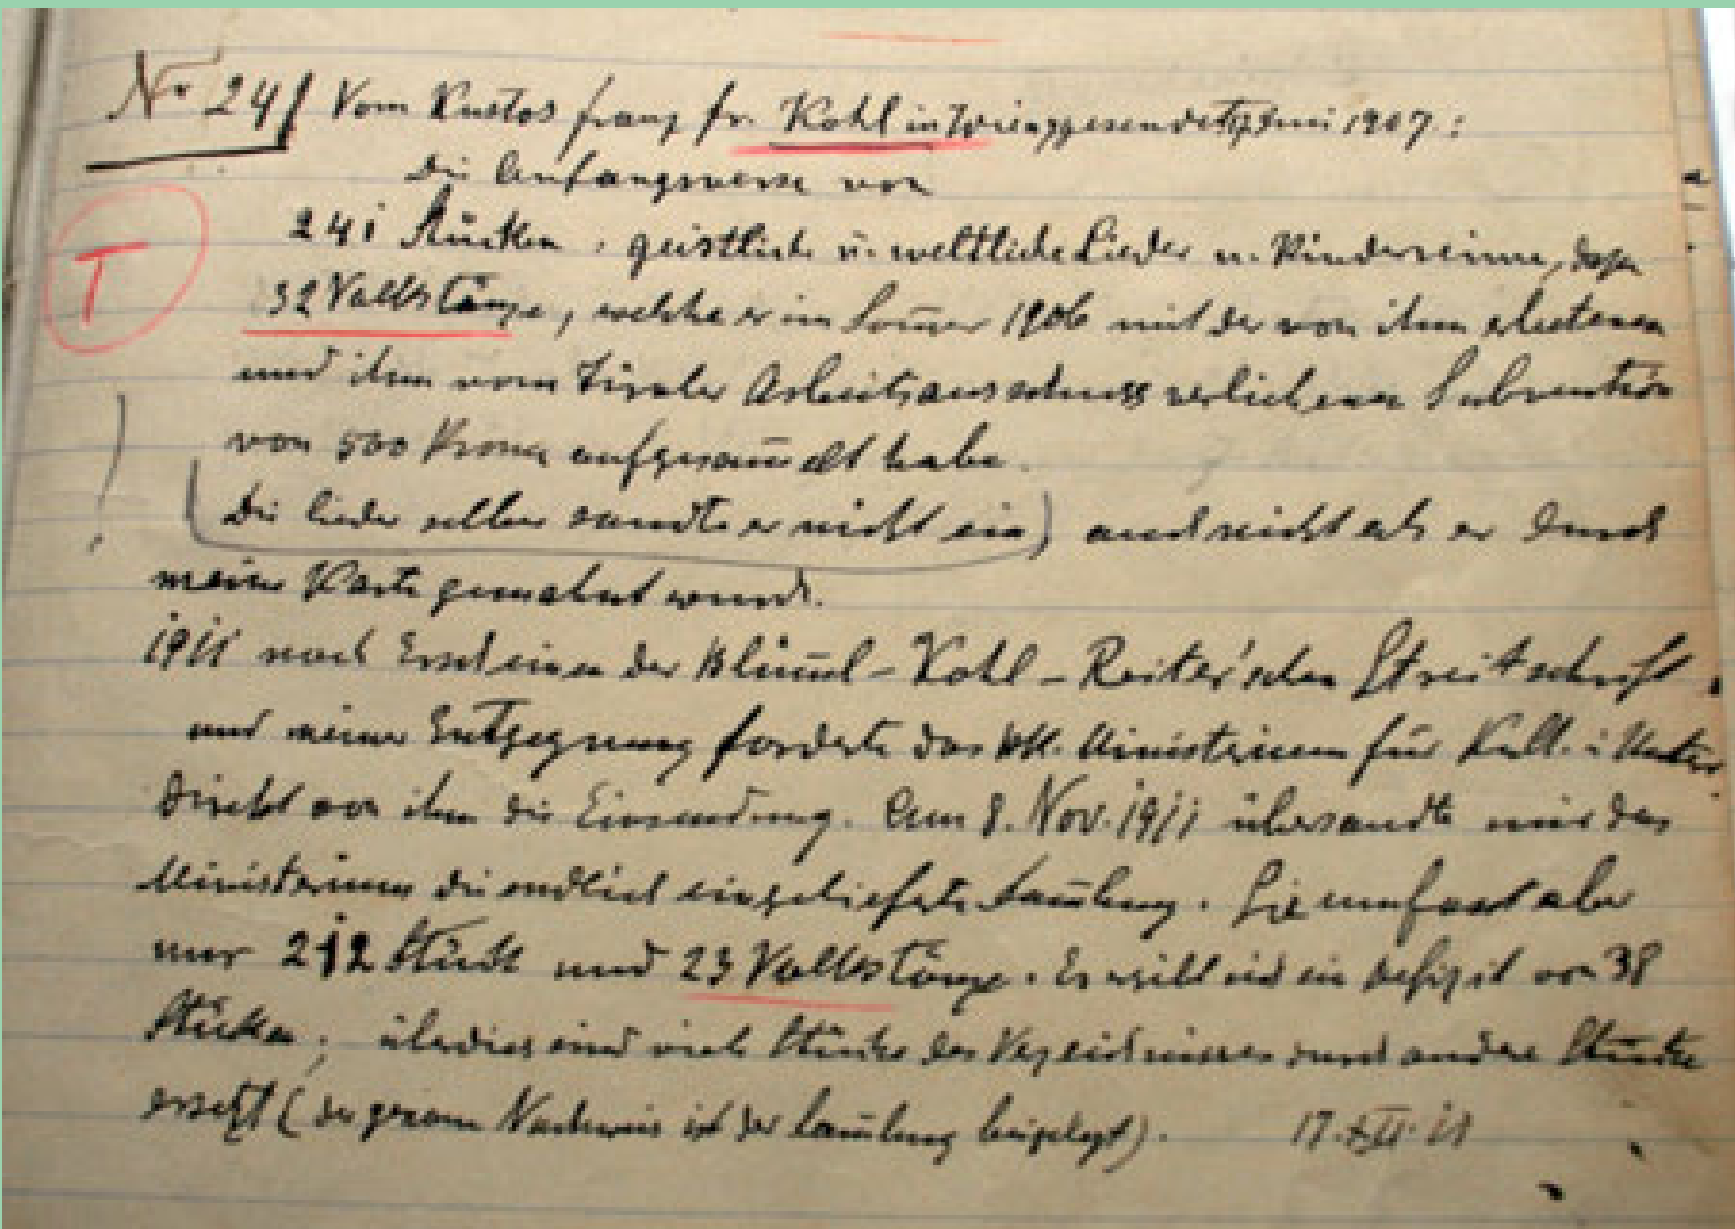 Nr 24/ Vom Kustos Franz Fr. Kohl in eingesendet Juni 1907:
Die Anfangsverse von
241 Stücken, geistliche u. weltliche Lieder u. Kinderreime, dazu
T
32 Volkstänze, welche er im Som̄er 1906 mit der von ihm erbetenen
und ihm vom Tiroler Arbeitsausschuss verliehenen Subvention
von 500 Kronen aufgesam̄elt habe.
! (Die Lieder selber sandte er nicht ein) auch nicht als er durch
meine Karte gemahnt wurde.
1911 nach Erscheinen der Blüm̄l-Kohl-Reiter'schen Streitschrift
und meiner Entgegnung forderte das k.k. Ministerium für Kult. u. Unterr.
direkt von ihm die Einsendung. Am 8. Nov. 1911 übersandte mir das
Ministerium die endlich eingelieferte Sam̄lung. Sie umfasst aber
nur 212 Stücke und 23 Volkstänze. Es ergibt sich ein Defizit von 38
Stücken; überdies sind viele Stücke des Verzeichnisses durch andere Stücke
ersetzt (der genaue Nachweis ist der Sam̄lung beigelegt). 17.XII.11